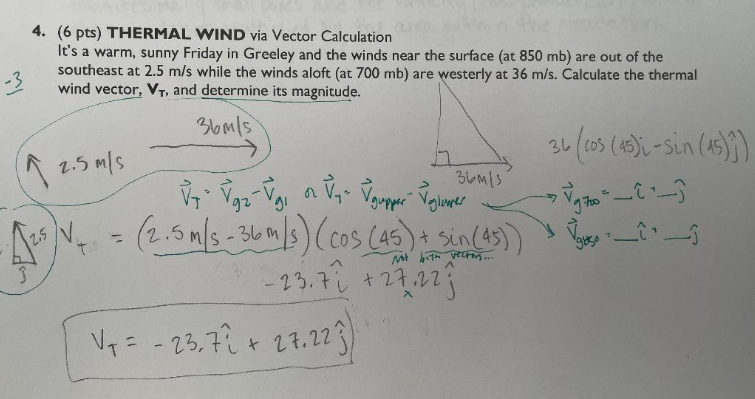 4. (6 pts) THERMAL WIND via Vector Calculation
It's a warm, sunny Friday in Greeley and the winds near the surface (at 850 mb) are out of the
southeast at 2.5 m/s while the winds aloft (at 700 mb) are westerly at 36 m/s. Calculate the thermal
wind vector, V_T, and determine its magnitude.
-3
36m/s
2.5 m/s
36m/s
36 (cos (45)î - sin (45)ĵ)
V⃗_T = V⃗_g2 - V⃗_g1 or V⃗_T = V⃗_gupper - V⃗_glower
V⃗_g700 = _î + _ĵ
V⃗_g850 = _î + _ĵ
2.5
ĵ
V_T = (2.5 m/s - 36 m/s) (cos (45) + sin(45))
Not both vectors...
- 23.7î + 27.22ĵ
x
V_T = - 23.7î + 27.22ĵ